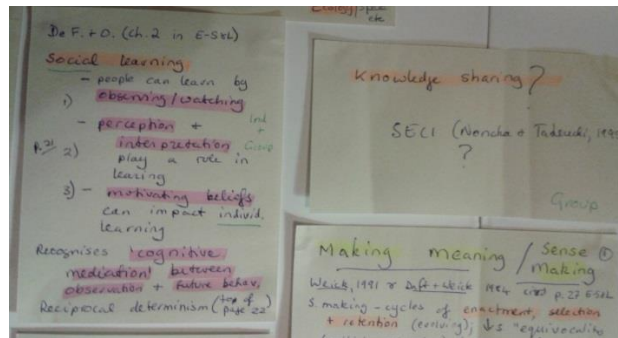 De F. + O. (ch. 2 in E-S&L)
Social learning
- people can learn by
1) observing/watching
- perception + Ind + Group
p.21 2) interpretation
play a role in
learing
3) - motivating beliefs
can impact individ.
learning
Recognises 'cognitive
mediation' between
observation + future behav.
Reciprocal determinism (top of page 22)
Knowledge sharing?
SECI (Nonaka & 199
?
Group
Making meaning / Sense making ①
Weick, 1991 & Daft + Weick 1984 cited p. 27 E-S&L
S. making - cycles of enactment, selection
+ retention (evolving); ↓s "equivocality